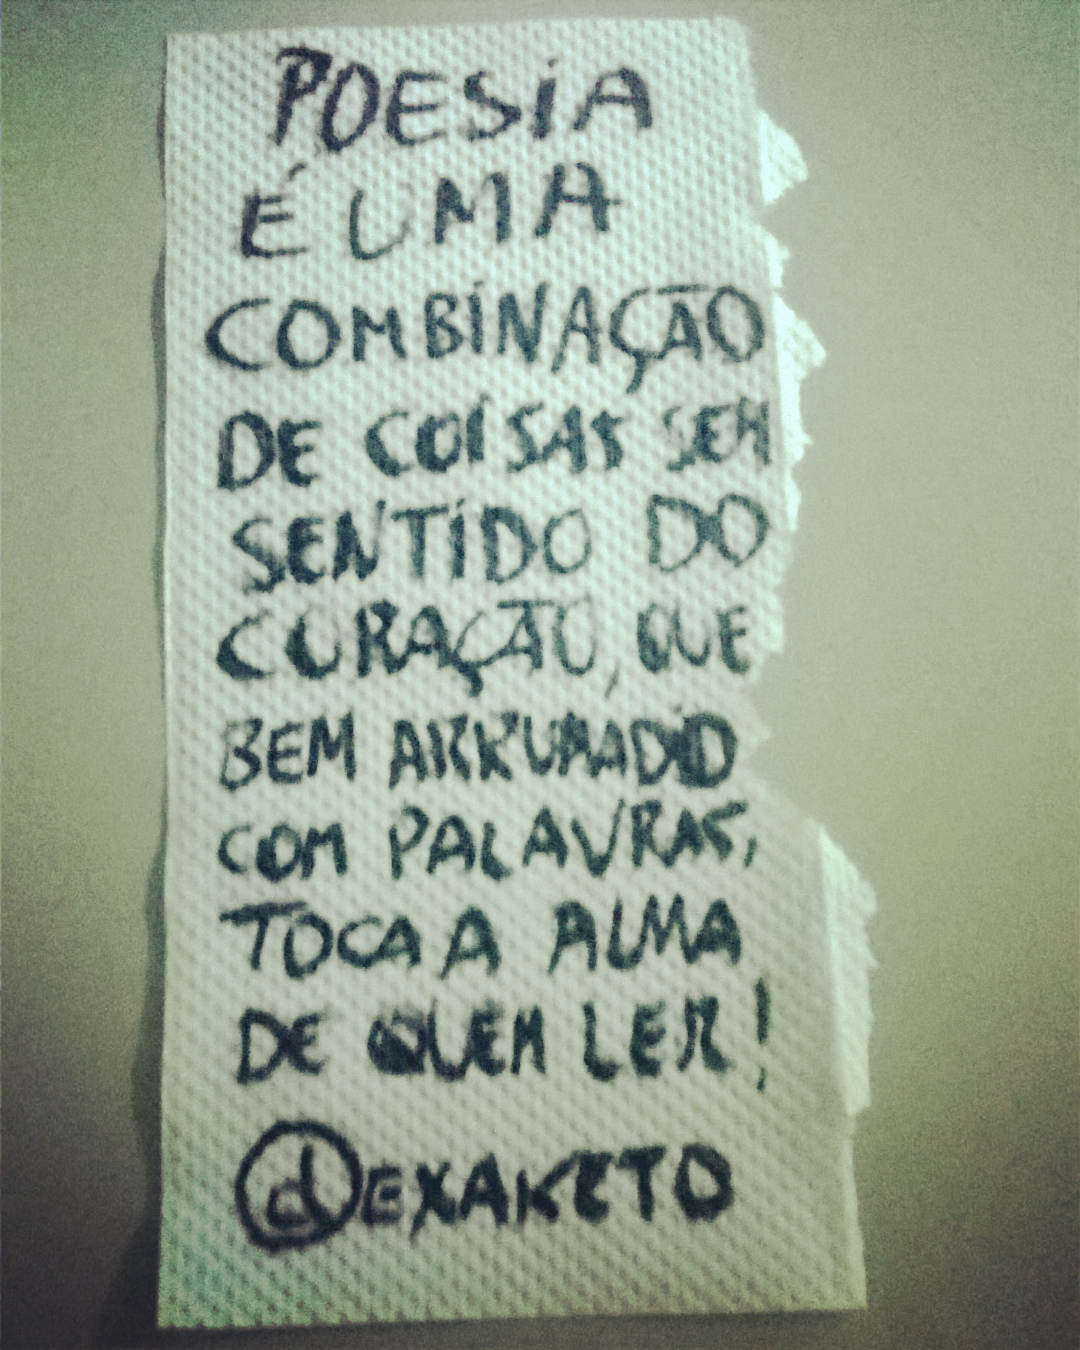 POESIA
É UMA
COMBINAÇÃO
DE COISAS SEM
SENTIDO DO
CORAÇÃO, QUE
BEM ARRUMADO
COM PALAVRAS,
TOCA A ALMA
DE QUEM LER!
@EXAKETO